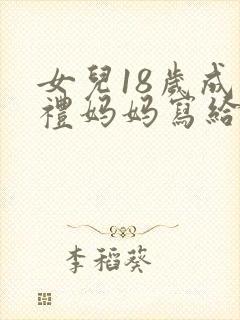 女兒18歲成
禮媽媽寫給
李稻葵